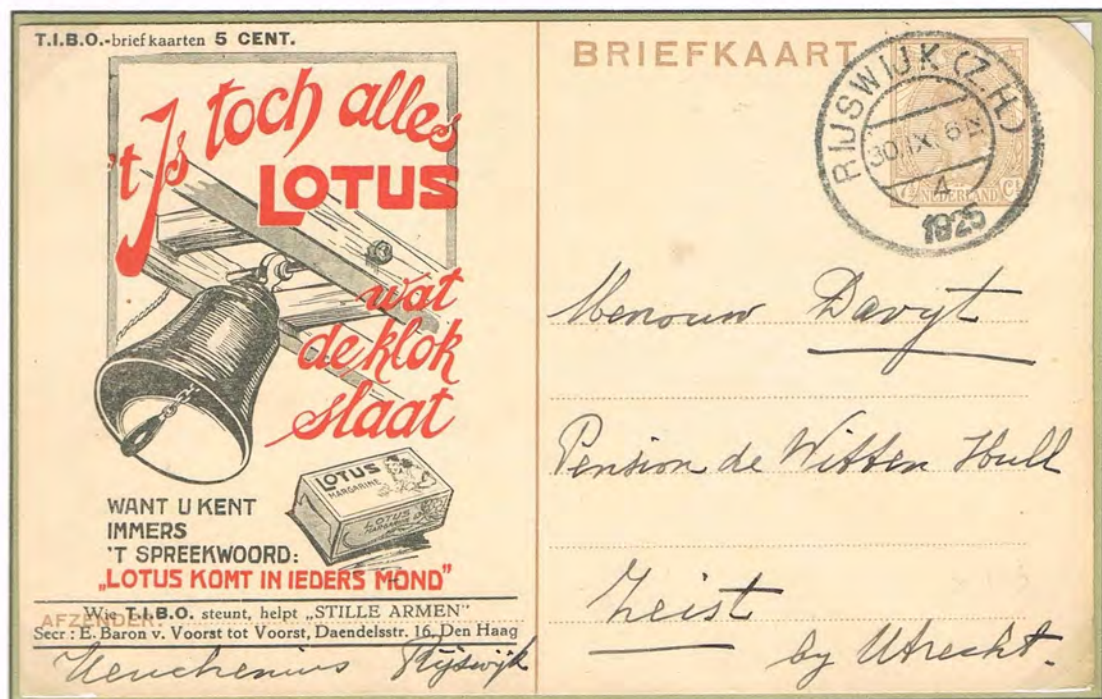 T.I.B.O.-briefkaarten 5 CENT.
't Is toch alles
LOTUS
wat
de klok
slaat
LOTUS
MARGARINE
LOTUS
MARGARINE
WANT U KENT
IMMERS
'T SPREEKWOORD:
„LOTUS KOMT IN IEDERS MOND"
Wie T.I.B.O. steunt, helpt „STILLE ARMEN"
AFZENDER:
Secr : E. Baron v. Voorst tot Voorst, Daendelsstr. 16, Den Haag
Heuchenius Rijswijk
BRIEFKAART
RIJSWIJK (Z.H.)
30.IX. 6N
4
1925
7½ NEDERLAND Ct
Menouw Davijt
Pension de Witten Hull
Zeist
by Utrecht.